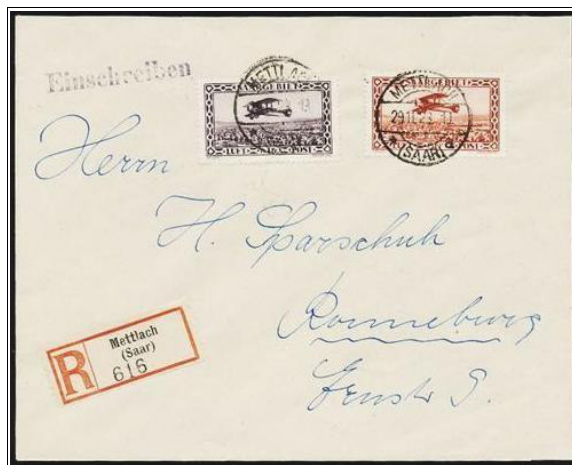 Einschreiben
METTLACH
SAARGEBIET
LUFT POST
METTLACH
29.11.28
(SAAR)
SAARGEBIET
POST
Herrn
H. Sparschuh
Ronneburg
R
Mettlach
(Saar)
616